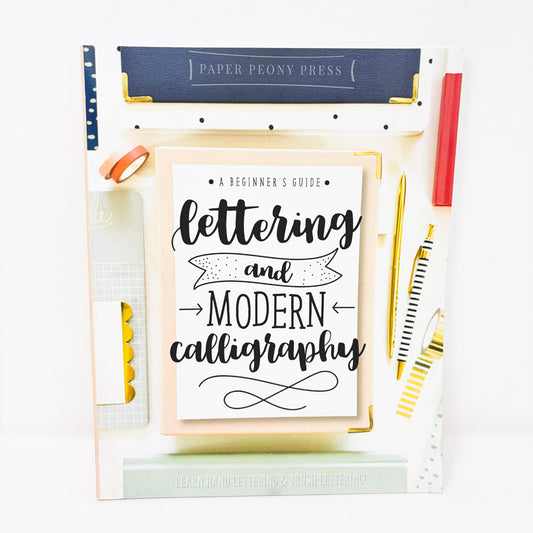 PAPER PEONY PRESS
• A BEGINNER'S GUIDE •
lettering
and
MODERN
calligraphy
la
LEARN HAND LETTERING & BRUSH LETTERING!